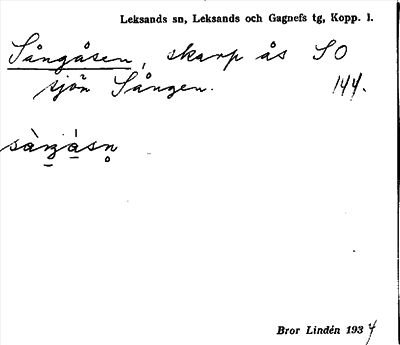 Leksands sn, Leksands och Gagnefs tg, Kopp. l.
Sångåsen, skarp ås SO
sjön Sången. 144.
sàŋåsn̥
Bror Lindén 1934